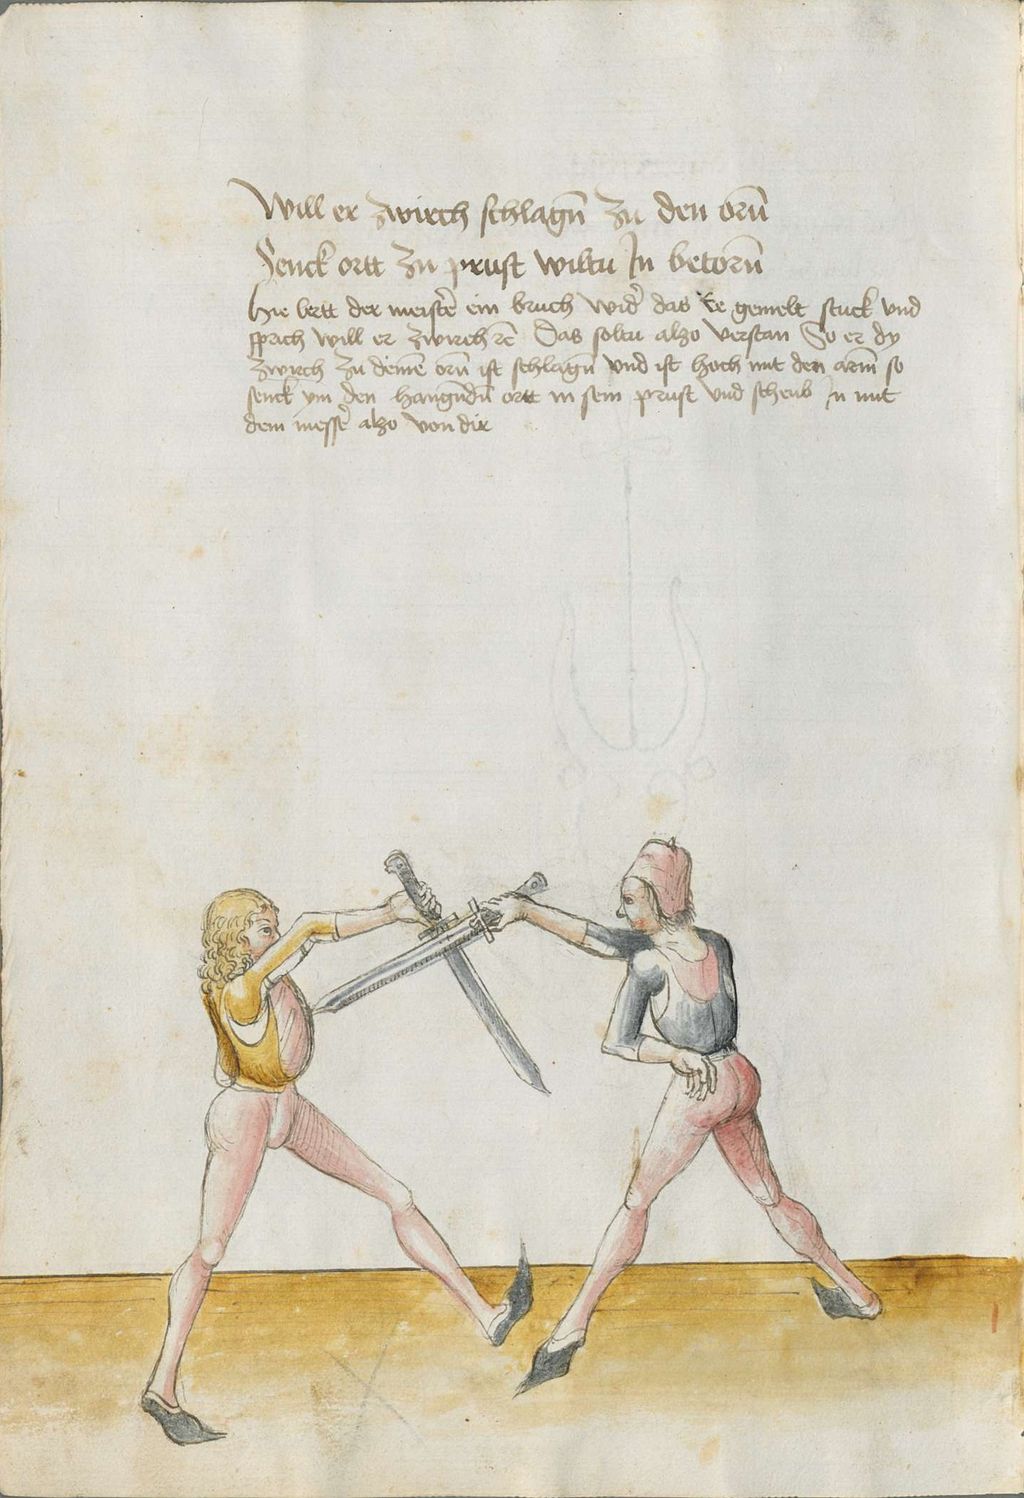 Will er zwirch schlagn̄ zu den orn̄
Senck ortt zu prust wiltu In betorn̄
Hie lertt der meister̄ ein bruch wider̄ das Ee gemelt stuck vnd
sprich will er zwirch rē Das soltu also verstan So er dy
zwirch zu deinē orn̄ ist schlagn̄ vnd ist hoch mit den arm̄ so
senck ym den hangundn̄ ortt in sein prust vnd scheub In mit
dem messer̄ also von dir